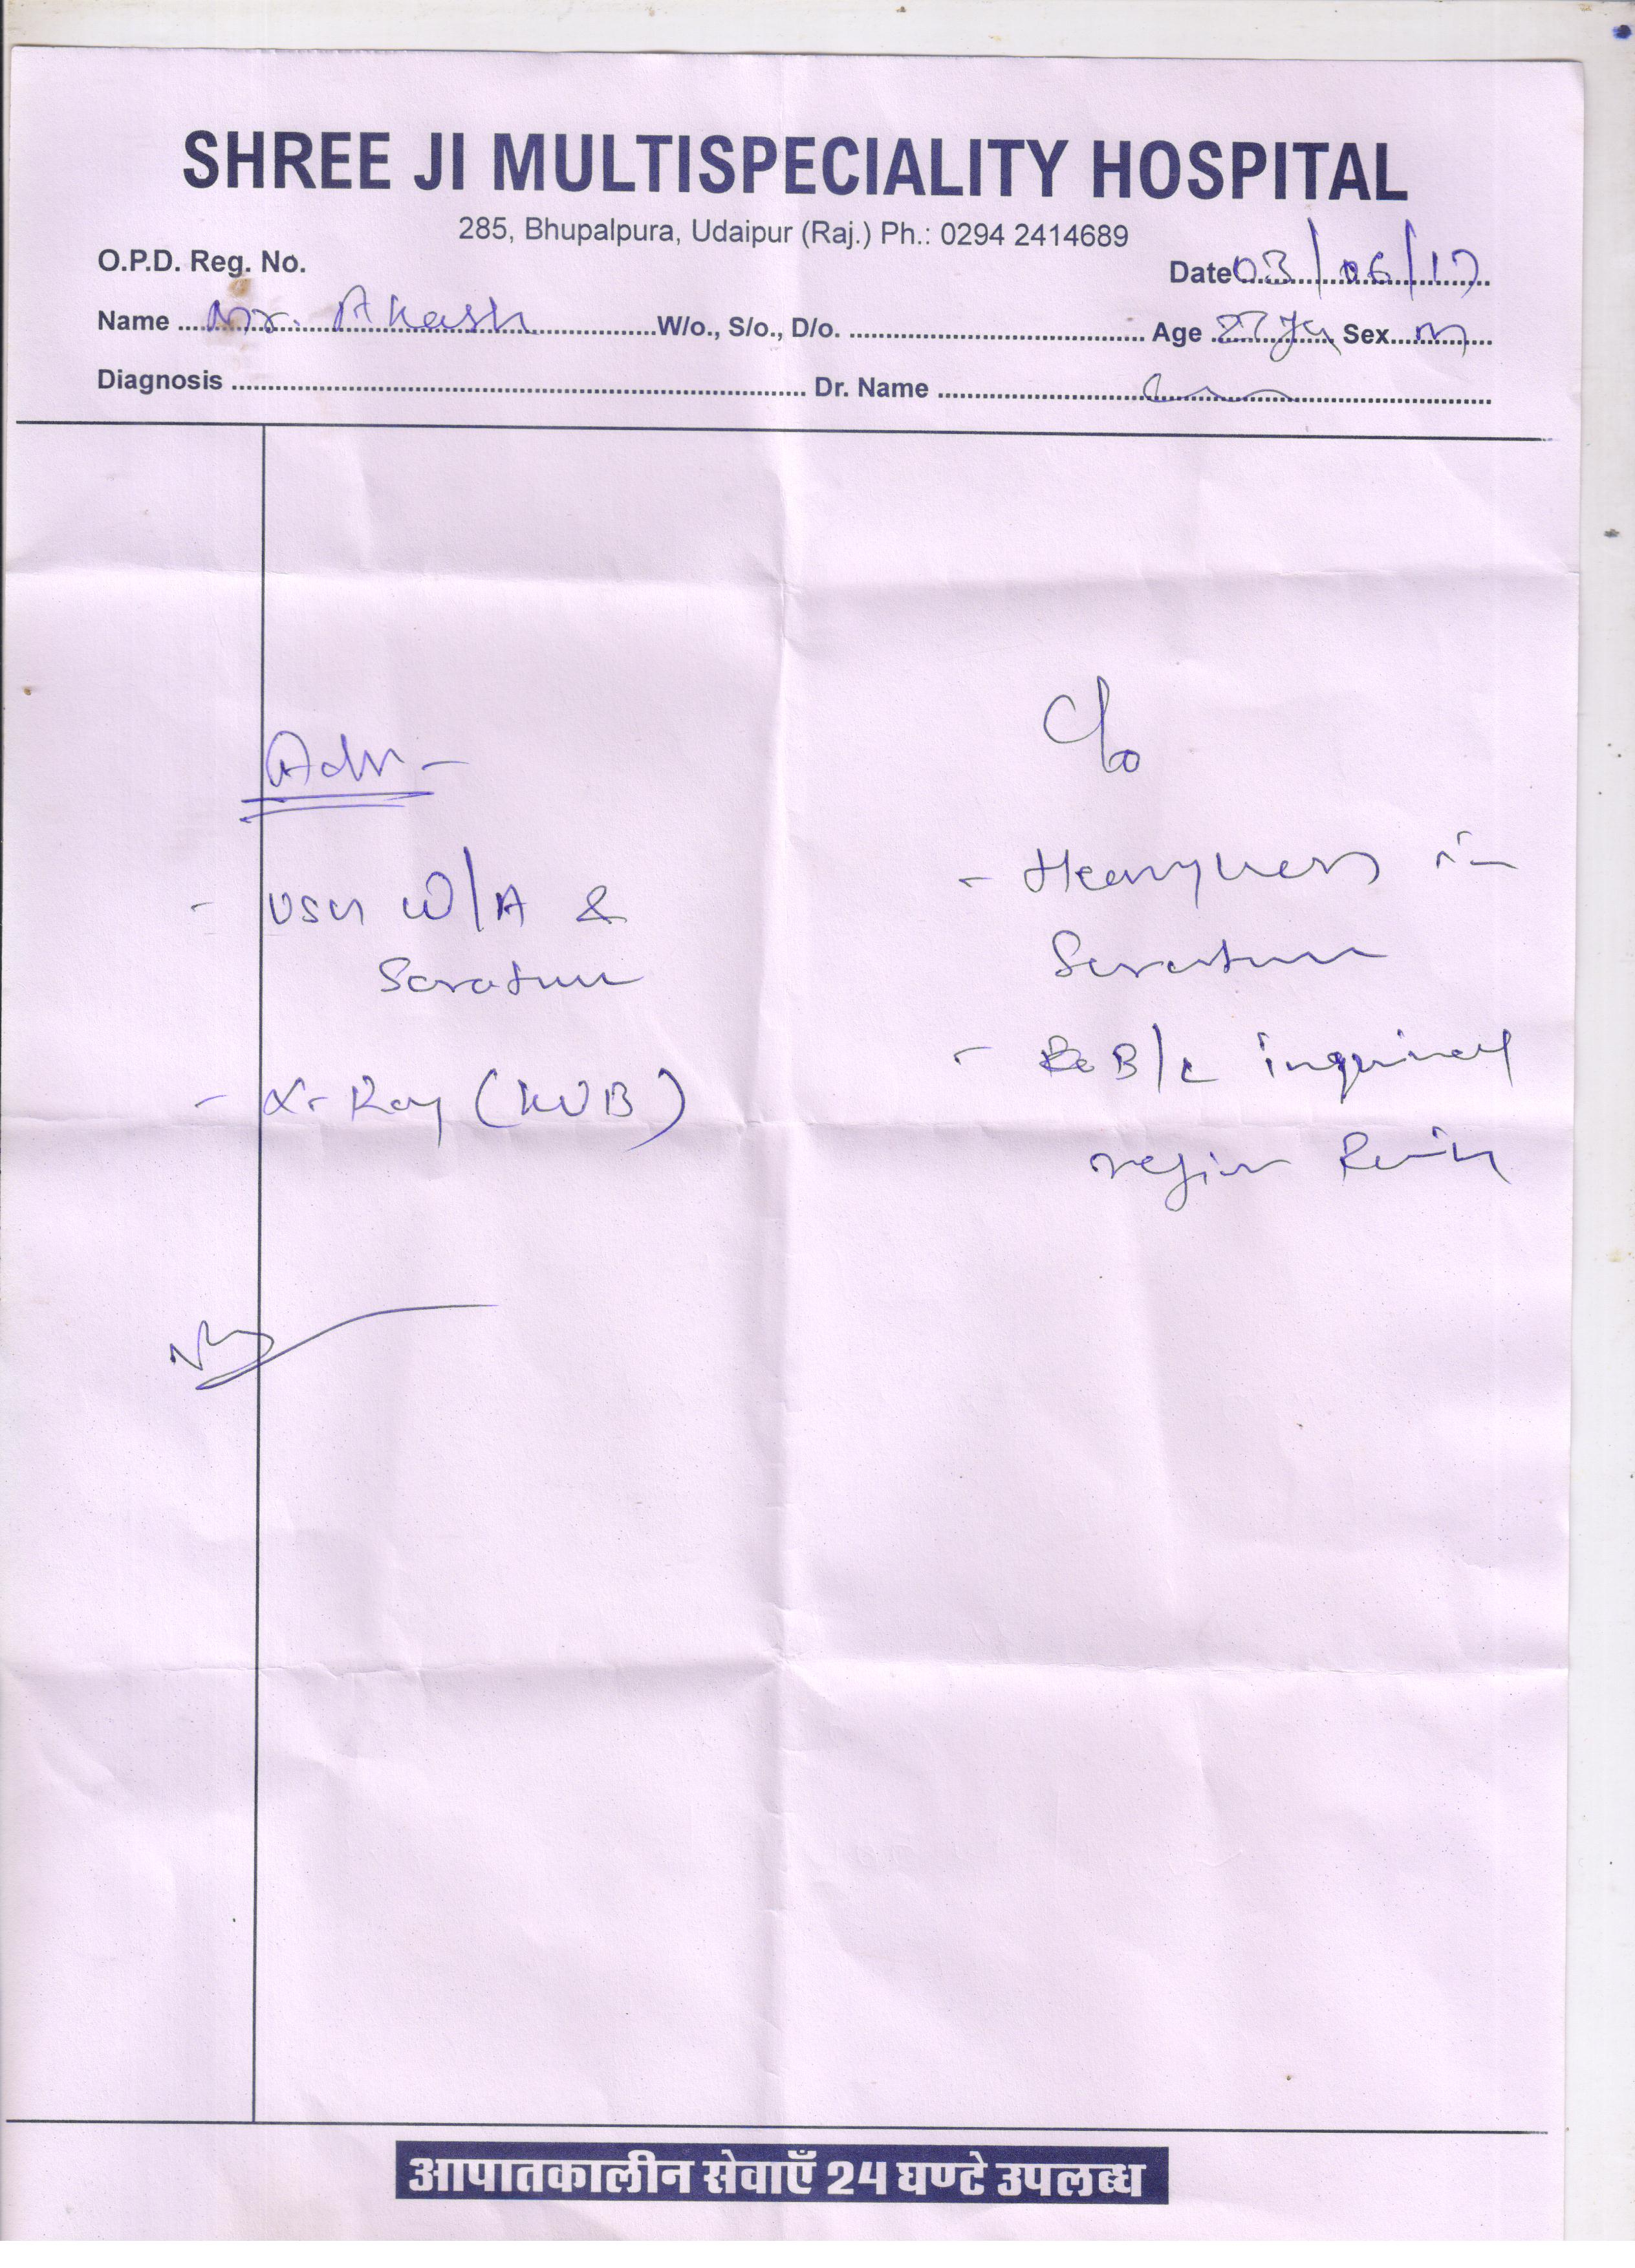 SHREE JI MULTISPECIALITY HOSPITAL
285, Bhupalpura, Udaipur (Raj.) Ph.: 0294 2414689
O.P.D. Reg. No.
Date 03/06/17
Name Mr. Akash W/o., S/o., D/o. Age 27 yr Sex M
Diagnosis Dr. Name
Adv -
- USG W/A &
Scrotum
- X-Ray (KUB)
C/o
- Heavyness in
Scrotum
- B/L inguinal
region Pain
आपातकालीन सेवाएँ 24 घण्टे उपलब्ध